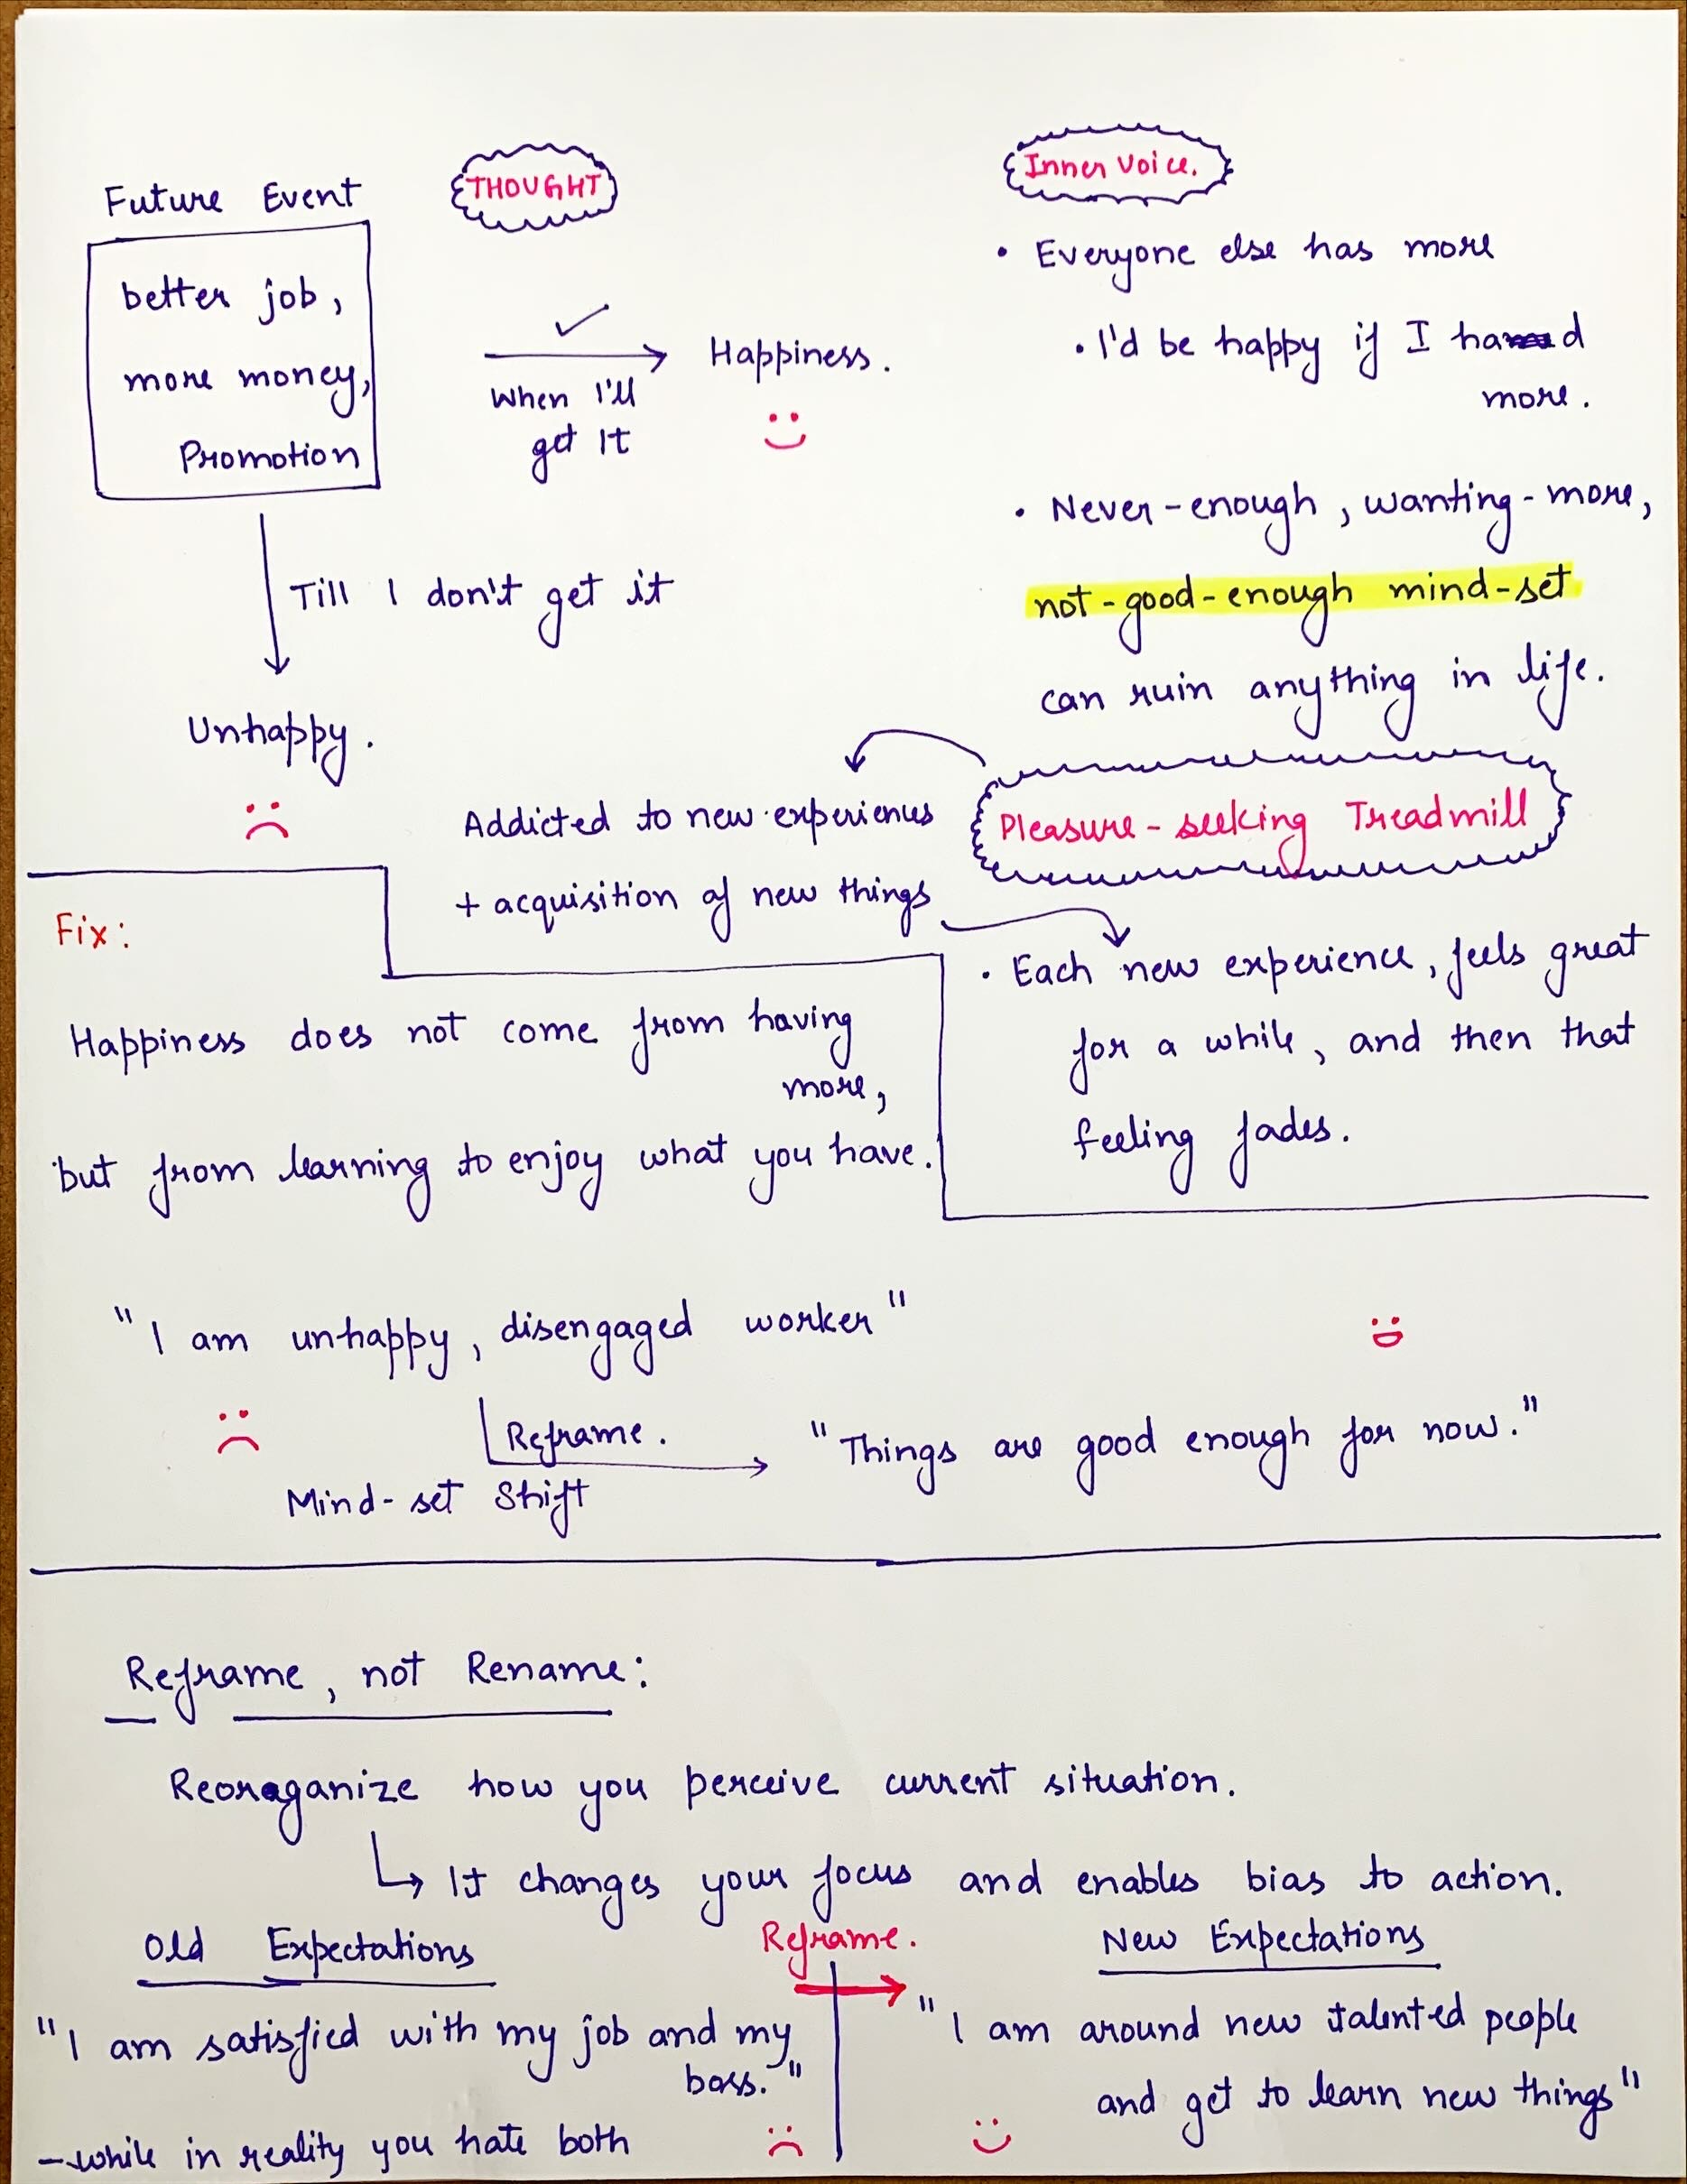 Future Event
better job,
more money,
Promotion
THOUGHT
When I'll
get It
Happiness.
Till I don't get it
Unhappy.
Inner Voice.
• Everyone else has more
• I'd be happy if I had
more.
• Never-enough, wanting-more,
not-good-enough mind-set
can ruin anything in life.
Pleasure-seeking Treadmill
Addicted to new experiences
+ acquisition of new things
• Each new experience, feels great
for a while, and then that
feeling fades.
Fix:
Happiness does not come from having
more,
but from learning to enjoy what you have.
"I am unhappy, disengaged worker"
Reframe.
Mind-set Shift
"Things are good enough for now."
Reframe, not Rename:
Reorganize how you perceive current situation.
It changes your focus and enables bias to action.
Old Expectations
Reframe.
New Expectations
"I am satisfied with my job and my
boss."
- while in reality you hate both
"I am around new talented people
and get to learn new things"